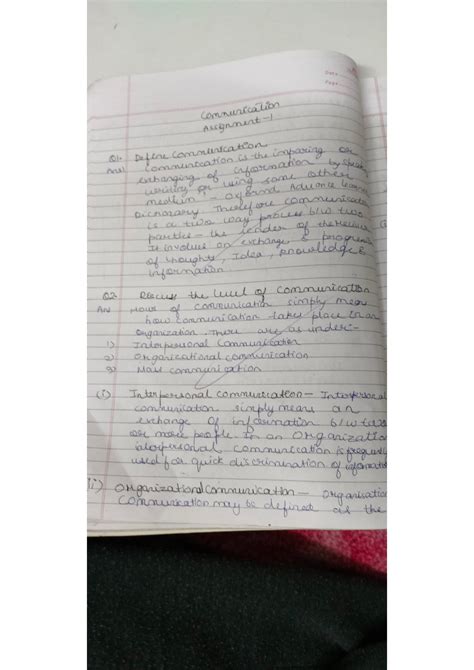 Date
Page
Communication
Assignment-1
Q1. Define Communication
Ans) Communication is the imparing or
exchanging of information by speak
writing or using some other
medium - Oxford Advance learn
Dictionary. Therefore communicatio
is a two way process b/w two
parties - the sender of the
It involves an exchange &
of thoughts, Idea, knowledge &
information
Q2. Discuss the level of communication
An of communication simply mean
how communication takes place in an
organization. There are as under:-
1) Interpersonal Communication
2) Organizational communication
3) Mass communication
(i) Interpersonal communication - Interpersonal
communication simply means an
exchange of information b/w two
or more people in an Organization
communication is frequently
used for quick discrimination of information
ii) Organizational Communication - Organisation
Communication may be defined as the